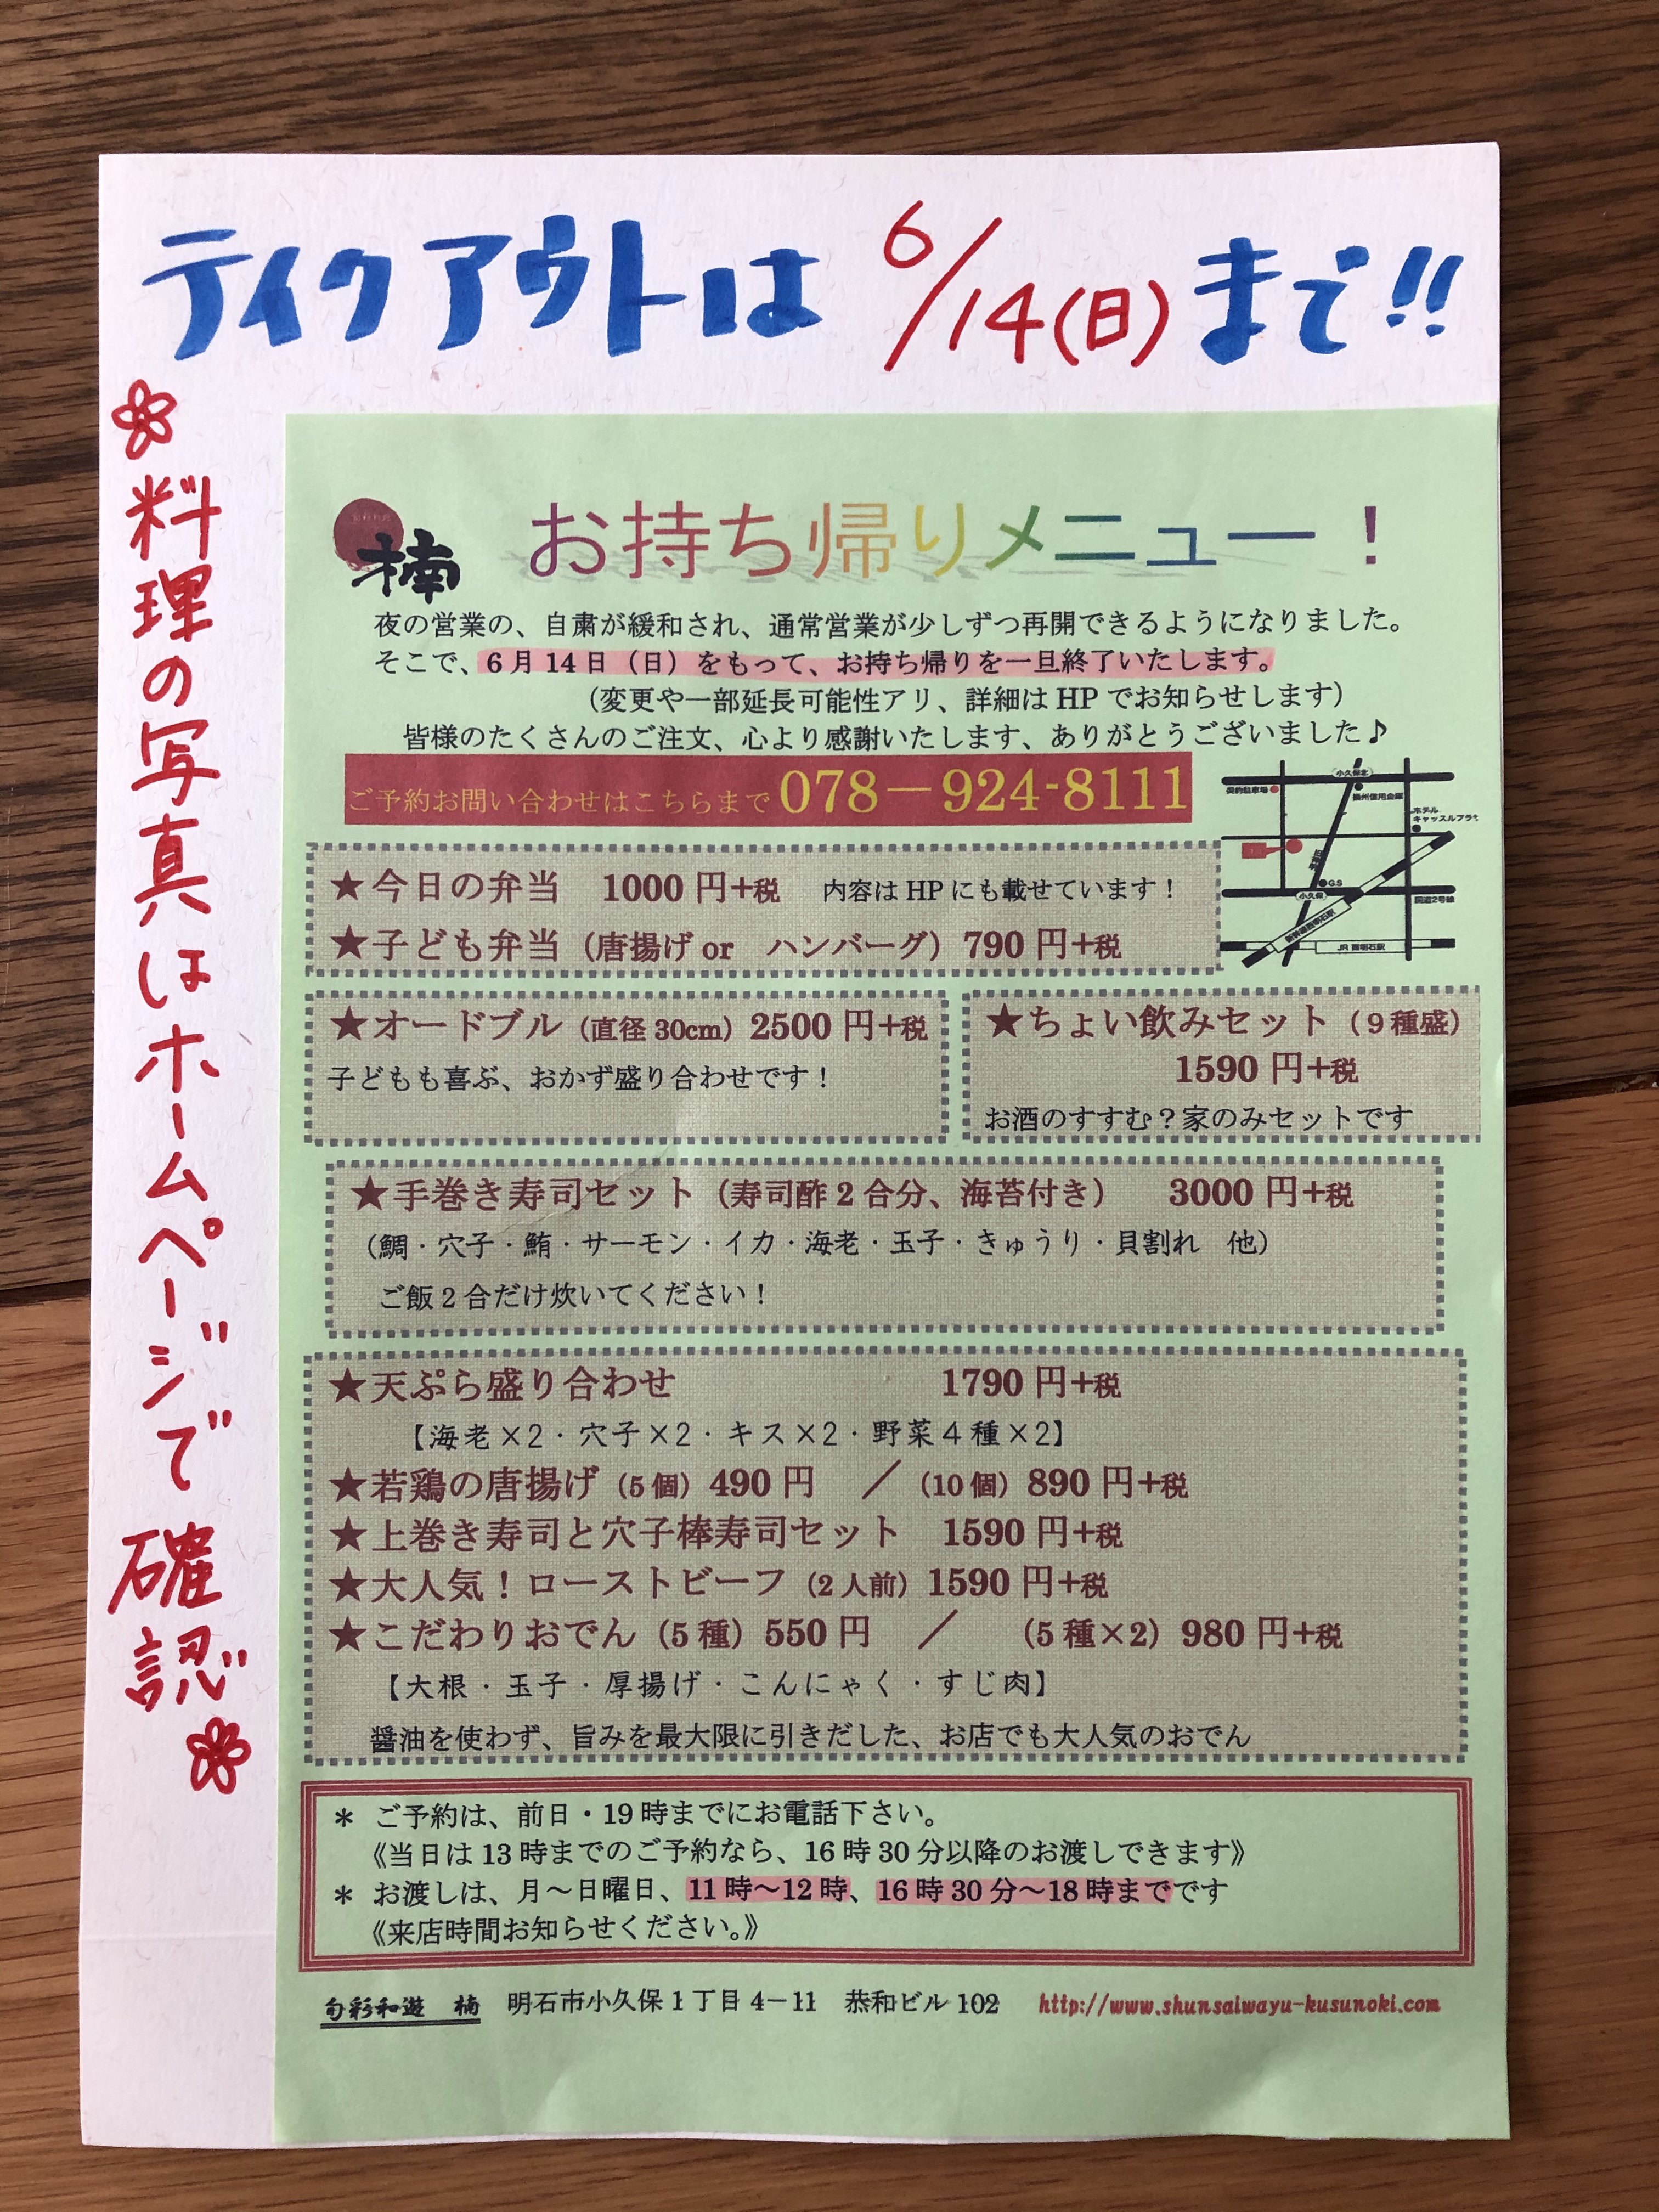 テイクアウトは6/14(日)まで!!
料理の写真はホームページで確認
楠
お持ち帰りメニュー！
夜の営業の、自粛が緩和され、通常営業が少しずつ再開できるようになりました。
そこで、6月14日（日）をもって、お持ち帰りを一旦終了いたします。
（変更や一部延長可能性アリ、詳細はHPでお知らせします）
皆様のたくさんのご注文、心より感謝いたします、ありがとうございました♪
ご予約お問い合わせはこちらまで 078－924-8111
小久保北
契約駐車場
播州信用金庫
ホテル
キャッスルプラザ
G.S
小久保
国道2号線
新幹線西明石駅
JR 西明石駅
★今日の弁当　1000円+税　内容はHPにも載せています！
★子ども弁当（唐揚げor　ハンバーグ）790円+税
★オードブル（直径30cm）2500円+税
子どもも喜ぶ、おかず盛り合わせです！
★ちょい飲みセット（９種盛）
1590円+税
お酒のすすむ？家のみセットです
★手巻き寿司セット（寿司酢２合分、海苔付き）　3000円+税
（鯛・穴子・鮪・サーモン・イカ・海老・玉子・きゅうり・貝割れ　他）
ご飯２合だけ炊いてください！
★天ぷら盛り合わせ　1790円+税
【海老×2・穴子×2・キス×2・野菜４種×2】
★若鶏の唐揚げ（5個）490円　／（10個）890円+税
★上巻き寿司と穴子棒寿司セット　1590円+税
★大人気！ローストビーフ（2人前）1590円+税
★こだわりおでん（5種）550円　／　（5種×2）980円+税
【大根・玉子・厚揚げ・こんにゃく・すじ肉】
醤油を使わず、旨みを最大限に引きだした、お店でも大人気のおでん
＊ ご予約は、前日・19時までにお電話下さい。
《当日は13時までのご予約なら、16時30分以降のお渡しできます》
＊ お渡しは、月～日曜日、11時～12時、16時30分～18時までです
《来店時間お知らせください。》
旬彩和遊　楠　明石市小久保１丁目4－11　恭和ビル102　http://www.shunsaiwayu-kusunoki.com